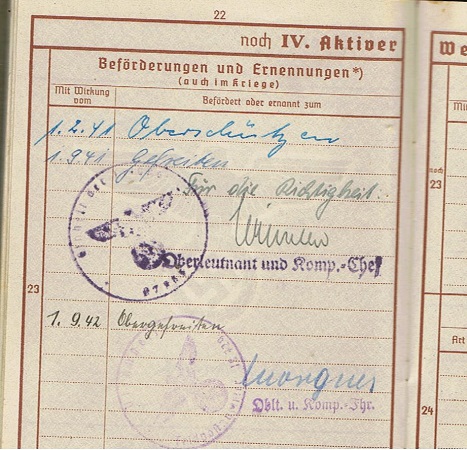 22
noch IV. Aktiver
Beförderungen und Ernennungen*)
(auch im Kriege)
Mit Wirkung vom
Befördert oder ernannt zum
1.2.41 Oberschützen
1.9.41 Gefreiten
Für die Richtigkeit.
Oberleutnant und Komp.-Chef
23
1.9.42 Obergefreiten
Oblt. u. Komp.-Fhr.
We
Mit
noch
23
Art
24